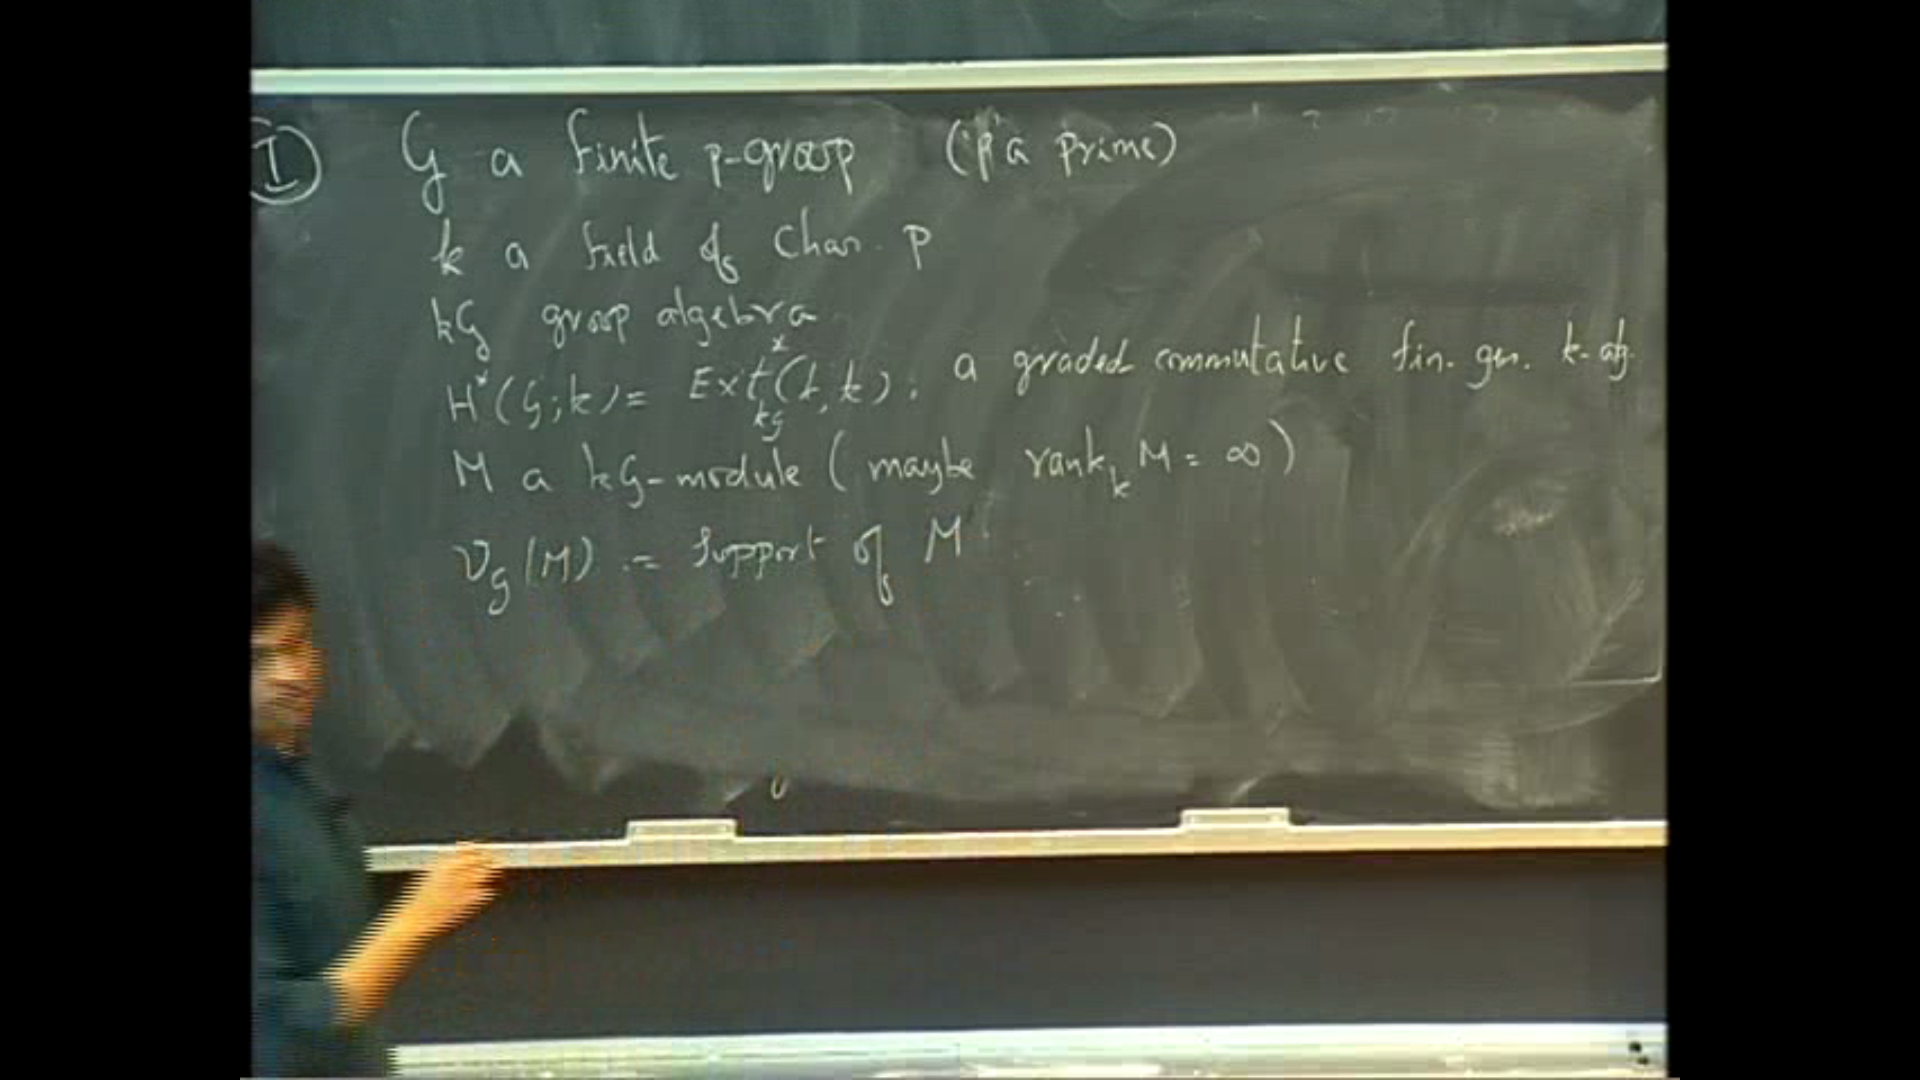 I G a finite p-group (p a prime)
k a field of char. p
kG group algebra
H*(G;k) = Ext*_kG(k,k), a graded commutative fin. gen. k-alg.
M a kG-module (maybe rank_k M = ∞)
V_G(M) := support of M